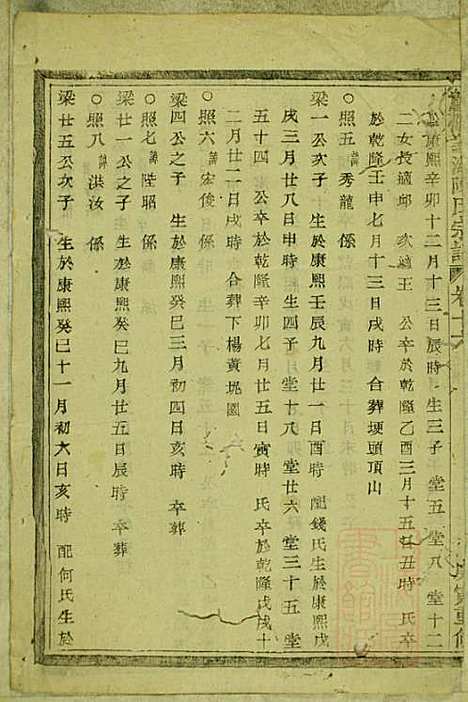 於康熙辛卯十二月十三日辰時 生三子 堂五 堂八 堂十二
二女長適邱 次適王 公卒於乾隆乙酉三月十五日丑時 氏卒
於乾隆壬申七月十三日戌時 合葬埂頭頂山
○照五 諱秀龍 係
梁一公次子 生於康熙壬辰九月廿一日酉時 配錢氏生於康熙戊
戌三月廿八日申時 生四子 堂十八 堂廿六 堂三十五 堂
五十四 公卒於乾隆辛卯七月廿五日寅時 氏卒於乾隆戊戌十
二月廿二日戌時 合葬下楊黃堍園
○照六 諱宏俊 係
梁四公之子 生於康熙癸巳三月初四日亥時 卒葬
○照七 諱陞昭 係
梁廿一公之子 生於康熙癸巳九月廿五日辰時 卒葬
○照八 諱洪汝 係
梁廿五公次子 生於康熙癸巳十一月初六日亥時 配何氏生於